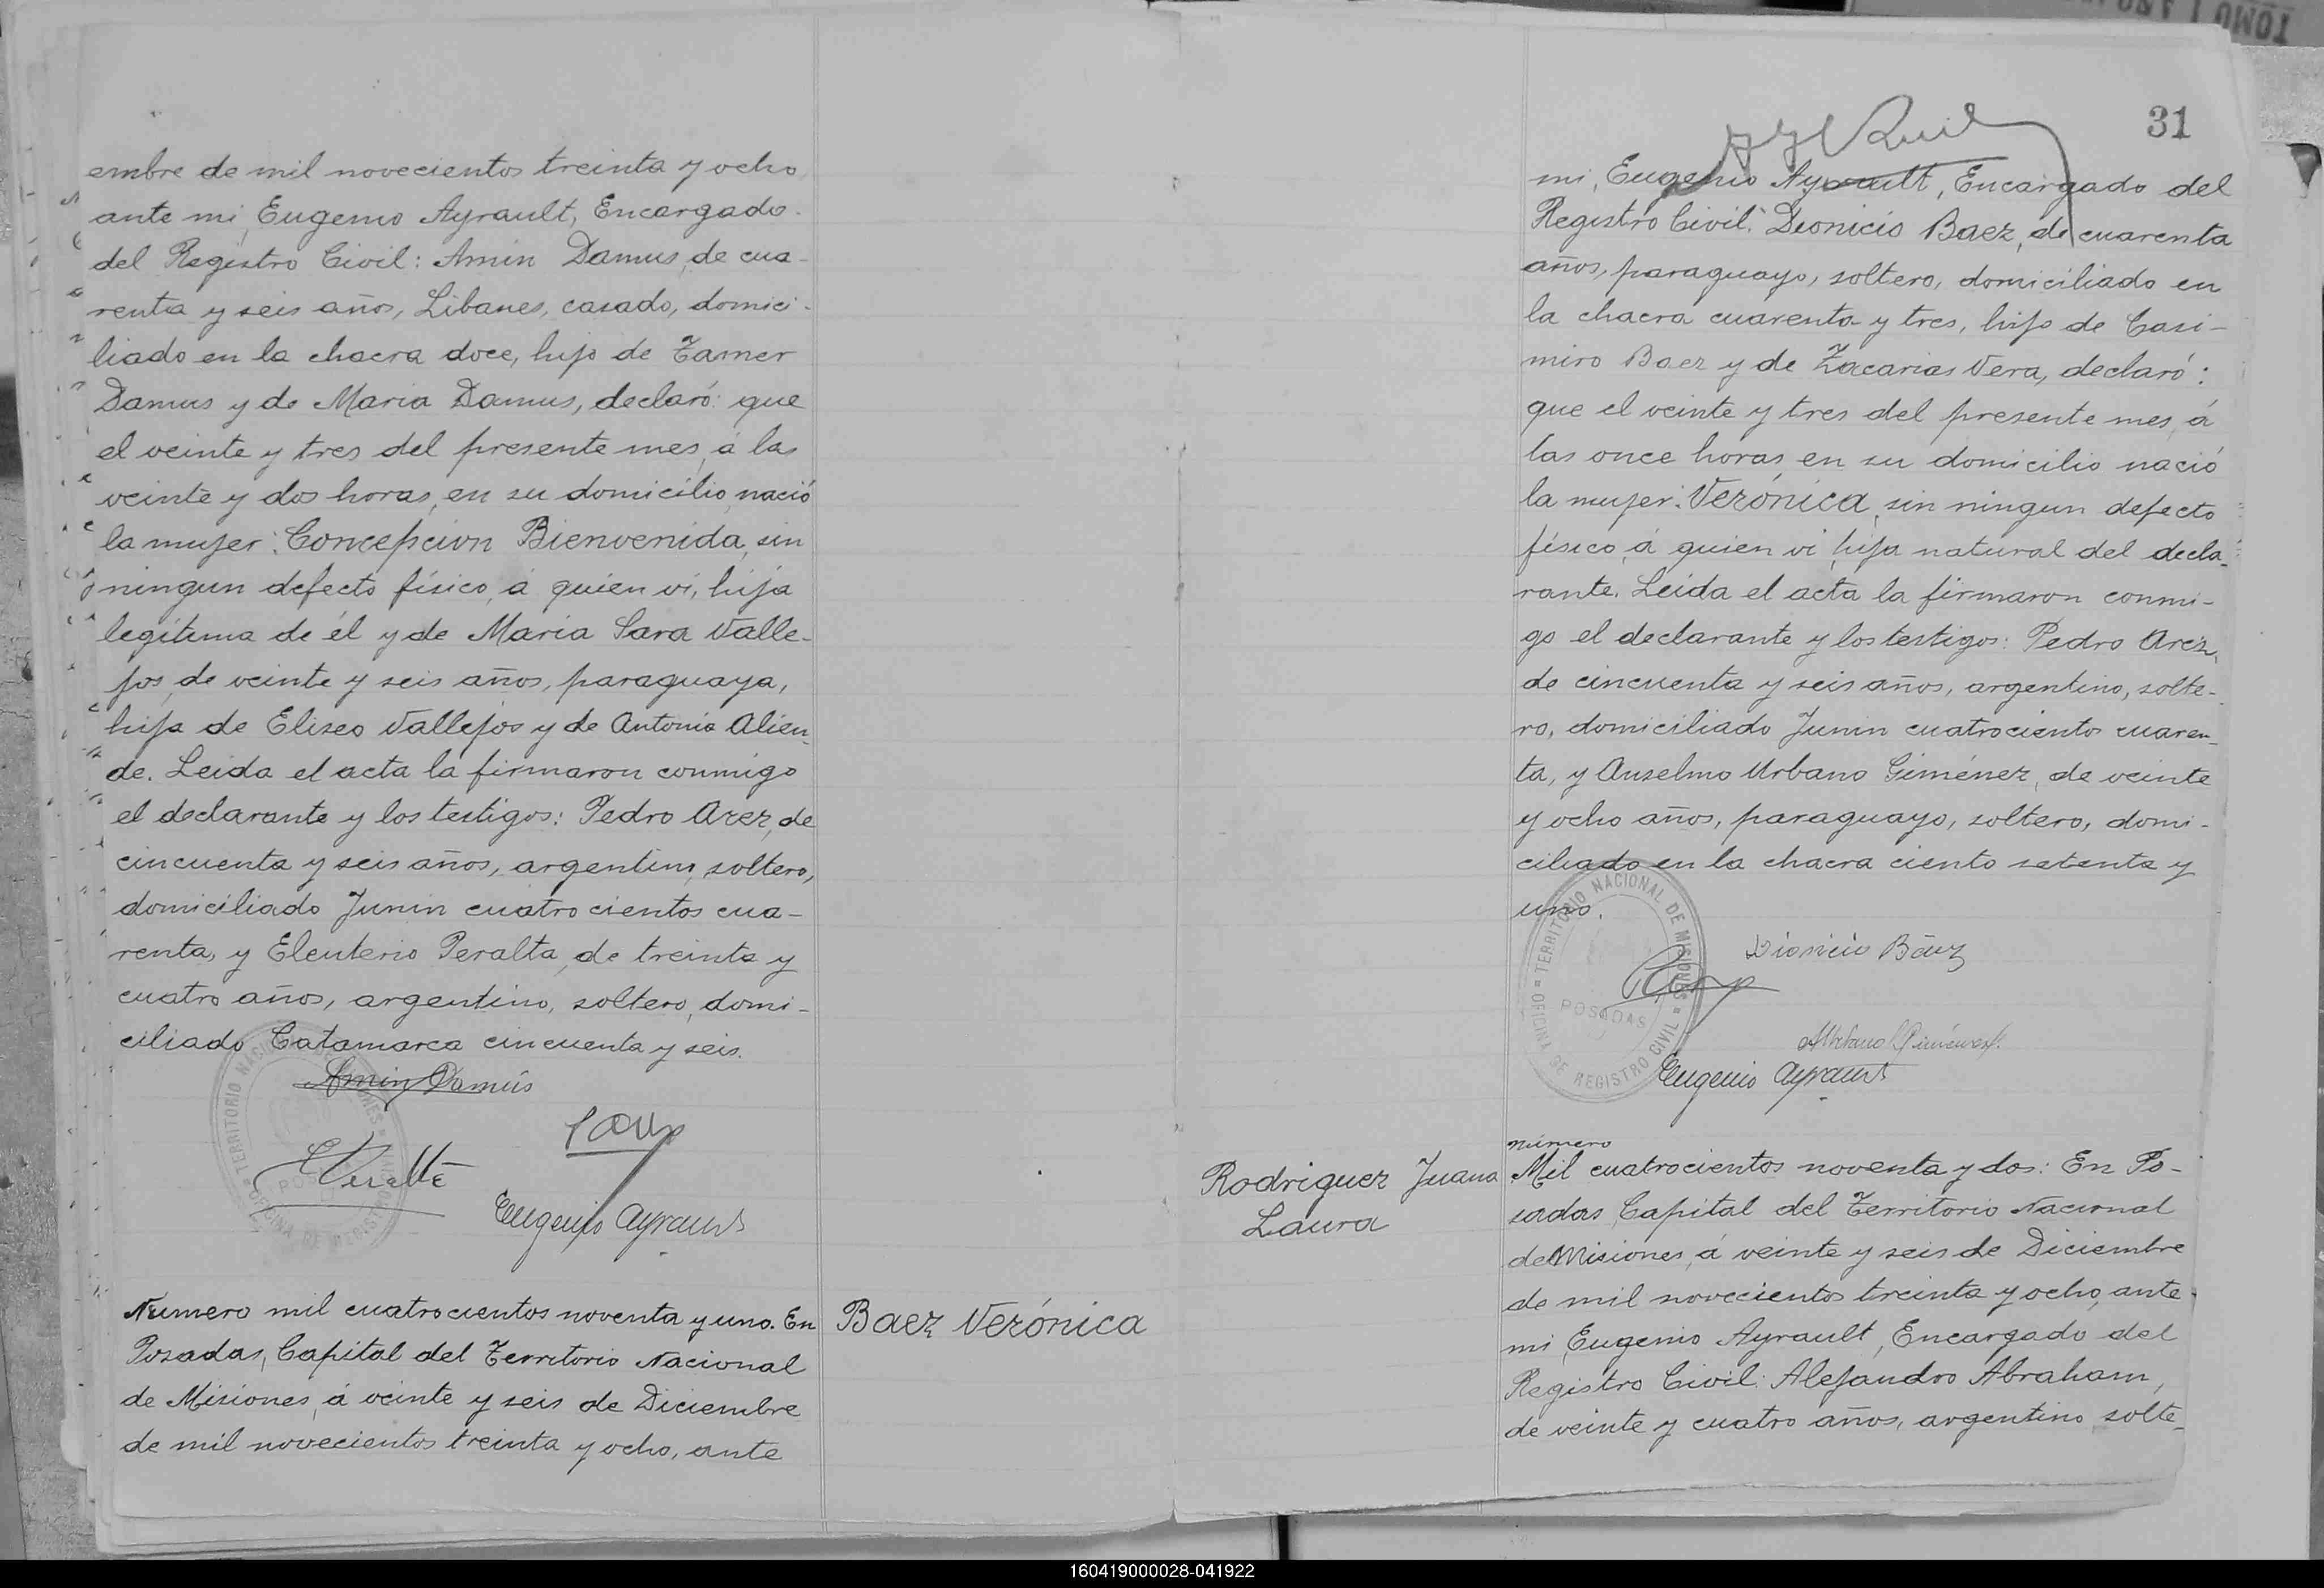 embre de mil novecientos treinta y ocho
ante mi, Eugenio Ayrault, Encargado
del Registro Civil: Amin Damus, de cua-
renta y seis años, Libanes, casado, domici-
liado en la chacra doce, hijo de Tamer
Damus y de Maria Damus, declaró: que
el veinte y tres del presente mes, á las
veinte y dos horas, en su domicilio, nació
la mujer: Concepcion Bienvenida, sin
ningun defecto físico, á quien vi, hija
legítima de él y de Maria Sara Valle-
jos, de veinte y seis años, paraguaya,
hija de Eliseo Vallejos y de Antonia Alien-
de. Leida el acta la firmaron conmigo
el declarante y los testigos: Pedro Arez, de
cincuenta y seis años, argentino, soltero,
domiciliado Junin cuatrocientos cua-
renta, y Eleuterio Peralta, de treinta y
cuatro años, argentino, soltero, domi-
ciliado Catamarca cincuenta y seis.
Amin Damus
Eugenio Ayrault
Numero mil cuatrocientos noventa y uno. En
Posadas, Capital del Territorio Nacional
de Misiones, á veinte y seis de Diciembre
de mil novecientos treinta y ocho, ante
Baez Verónica
31
mi, Eugenio Ayrault, Encargado del
Registro Civil: Dionicio Baez, de cuarenta
años, paraguayo, soltero, domiciliado en
la chacra cuarenta y tres, hijo de Casi-
miro Baez y de Zacarias Vera, declaró:
que el veinte y tres del presente mes, á
las once horas, en su domicilio nació
la mujer: Verónica, sin ningun defecto
físico, á quien vi, hija natural del decla-
rante. Leida el acta la firmaron conmi-
go el declarante y los testigos: Pedro Arez,
de cincuenta y seis años, argentino, solte-
ro, domiciliado Junin cuatrociento cuaren-
ta, y Anselmo Urbano Giménez, de veinte
y ocho años, paraguayo, soltero, domi-
ciliado en la chacra ciento setenta y
uno.
TERRITORIO NACIONAL DE MISIONES
OFICINA DE REGISTRO CIVIL
POSADAS
Dionicio Báez
Eugenio Ayrault
Rodriguez Juana
Laura
número
Mil cuatrocientos noventa y dos: En Po-
sadas, Capital del Territorio Nacional
de Misiones, á veinte y seis de Diciembre
de mil novecientos treinta y ocho, ante
mi, Eugenio Ayrault, Encargado del
Registro Civil: Alejandro Abraham,
de veinte y cuatro años, argentino, solte-
160419000028-041922